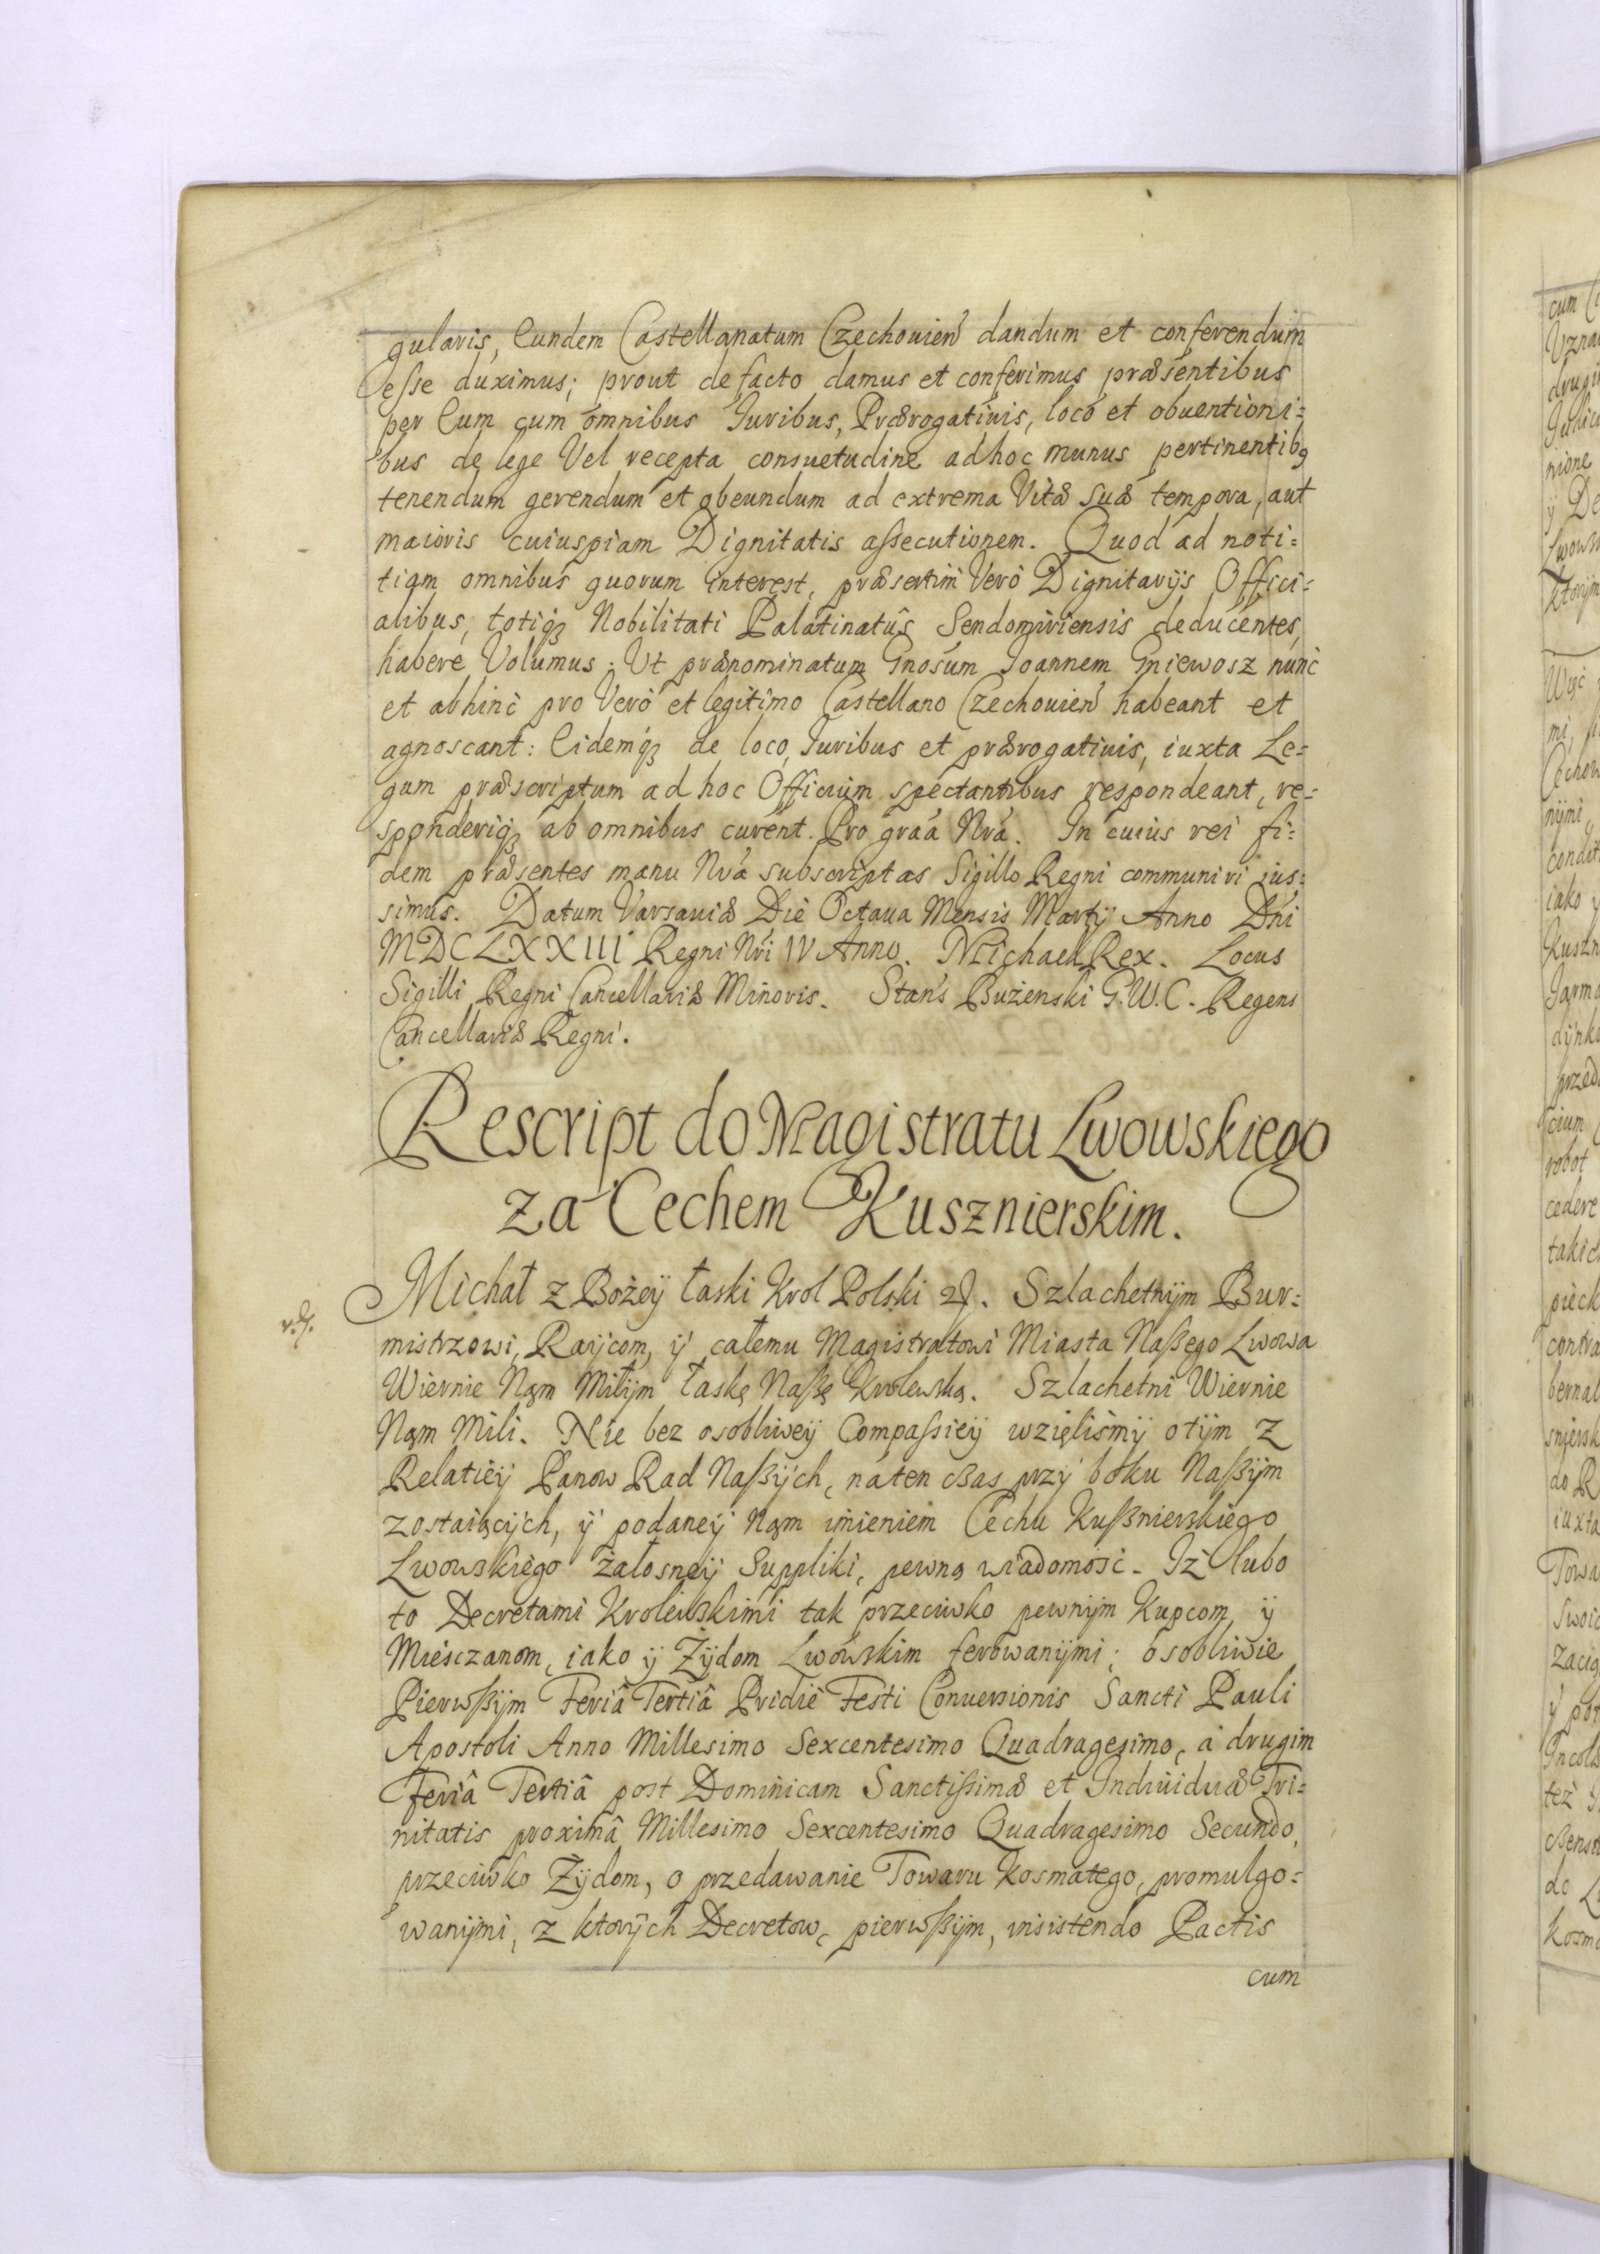 gularis, Eundem Castellanatum Czechouien̄ dandum et conferendum
esse duximus; prout de facto damus et conferimus præsentibus
per Eum cum omnibus Iuribus, Prærogatiuis, loco et obuentioni=
bus de lege Vel recepta consuetudine ad hoc munus pertinentibꝯ
tenendum gerendum et obeundum ad extrema Vitæ suæ tempora, aut
maioris cuiuspiam Dignitatis aſsecutionem. Quod ad noti=
tiam omnibus quorum interest, præsertim Verò Dignitarijs Offici=
alibus, totiqꝫ Nobilitati Palatinatûs Sendomiriensis deducentes,
habere Volumus. Vt prænominatum Gnosum Joannem Gniewosz nunc
et abhinc pro Verò et legitimo Castellano Czechouien̄ habeant et
agnoscant: Eidemqꝫ de loco, Iuribus et prærogatiuis, iuxta Le=
gum præscriptum ad hoc Officium spectantibus respondeant, re=
sponderiqꝫ ab omnibus curent. Pro graa Nrá. In cuius rei fi=
dem præsentes manu Nrá subscriptas Sigillo Regni communiri ius=
simus. Datum Varsauiæ Die Octaua Mensis Martij Anno Dni
MDCLXXIII Regni Nri IV Anno. Michael Rex. Locus
Sigilli Regni Cancellariæ Minoris. Stan's Bużenski G.W.C. Regens
Cancellariæ Regni.
Rescript do Magistratu Lwowskiego
za Cechem Kusznierskim.
Michał z Bożeÿ łaski Krol Polski. Szlachetnÿm Bur=
mistrzowi, Raÿcom, ÿ całemu Magistratowi Miasta Naßego Lwowa
Wiernie Nąm Miłÿm łaskę Naßę Krolewską. Szlachetni Wiernie
Nąm Mili. Nie bez osobliwey Compaſsieÿ wzięliśmÿ o tÿm z
Relatieÿ Panow Rad Naßÿch, náten czas przÿ boku Naßÿm
zostaiącÿch, ÿ podaneÿ Nąm imieniem Cechu Kußnierskiego
Lwowskiego żałosneÿ Suppliki, pewną wiadomość. Iż lubo
to Decretami Krolewskimi tak przeciwko pewnÿm Kupcom ÿ
Miesczanom, iako ÿ Żÿdom Lwowskim ferowanÿmi; osobliwie
Pierwßÿm Feriâ Tertiâ Pridie Festi Conuersionis Sancti Pauli
Apostoli Anno Millesimo Sexcentesimo Quadragesimo, á drugim
Feriâ Tertiâ post Dominicam Sanctiſsimæ et Indiuiduæ Tri=
nitatis proximâ Millesimo Sexcentesimo Quadragesimo Secundo,
przeciwko Żÿdom, o przedawanie Towaru Kosmatego, promulgo=
wanÿmi, z ktorÿch Decretow, pierwßÿm, insistendo Pactis
cum